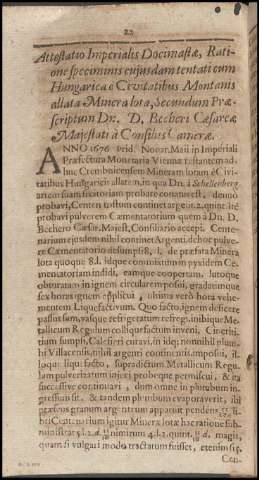 22
Attestatio Imperialis Docimastæ, Rati-
one speciminis cujusdam tentati cum
Hungaricæ Civitatibus Montanis
allata Minera lota, Secundum Præ-
scriptum Dn. D. Becheri Cæsareæ
Majestati à Consiliis Cameræ.
ANNO 1676. Prid. Novar. Maii in Imperiali
Præfectura Monetaria Viennæ restantem ad-
huc Crembnicensem Mineram lotam è Civi-
tatibus Hungariæ allatam, in qua Dn. à Schellenberg
artem suam facturam probare conatus est, demò
probavi, Centen. tostum continet argent. 2. quint. &c
probavi pulverem Cæmentatorium quem à Dn. D.
Bechero Cæsar. Majest. Consiliario accepi. Cente-
narium ejusdem nihil continet Argenti, de hoc pulve-
re Cæmentatorio desumpsi 8. l. de præfata Minera
lota quoque 8. l. idque commixtim in pyxidem Ce-
mentatoriam indidi, eamque coopertam, lutoque
obturatam in ignem circularem posui, gradatimque
sex horas ignem applicui, ultima verò hora vehe-
mentem Liquefactivum. Quo facto, ignem deficere
passus sum, vasque refrigeratum confregi, inibique Me-
tallicum Regulum colliquefactum inveni. Cineriti-
um sumpsi, Calefieri curavi, in idq; nonnihil plum-
bi Villacensis, nihil argenti continentis, imposui, il-
loque liquefacto, supradictum Metallicum Regu-
lum pulverizatum injeci probeque permiscui, & ita
successive continuavi, dum omne in plumbum in-
gressum sit, & tandem plumbum evaporaverit, ibi
præsens granum argenteum apparuit pendens
bet Centenarium igitur Mineræ lotæ hac ratione sub-
ministrat
quam si vulgari modo tractatum fuisset, etenim si q;
Cen-